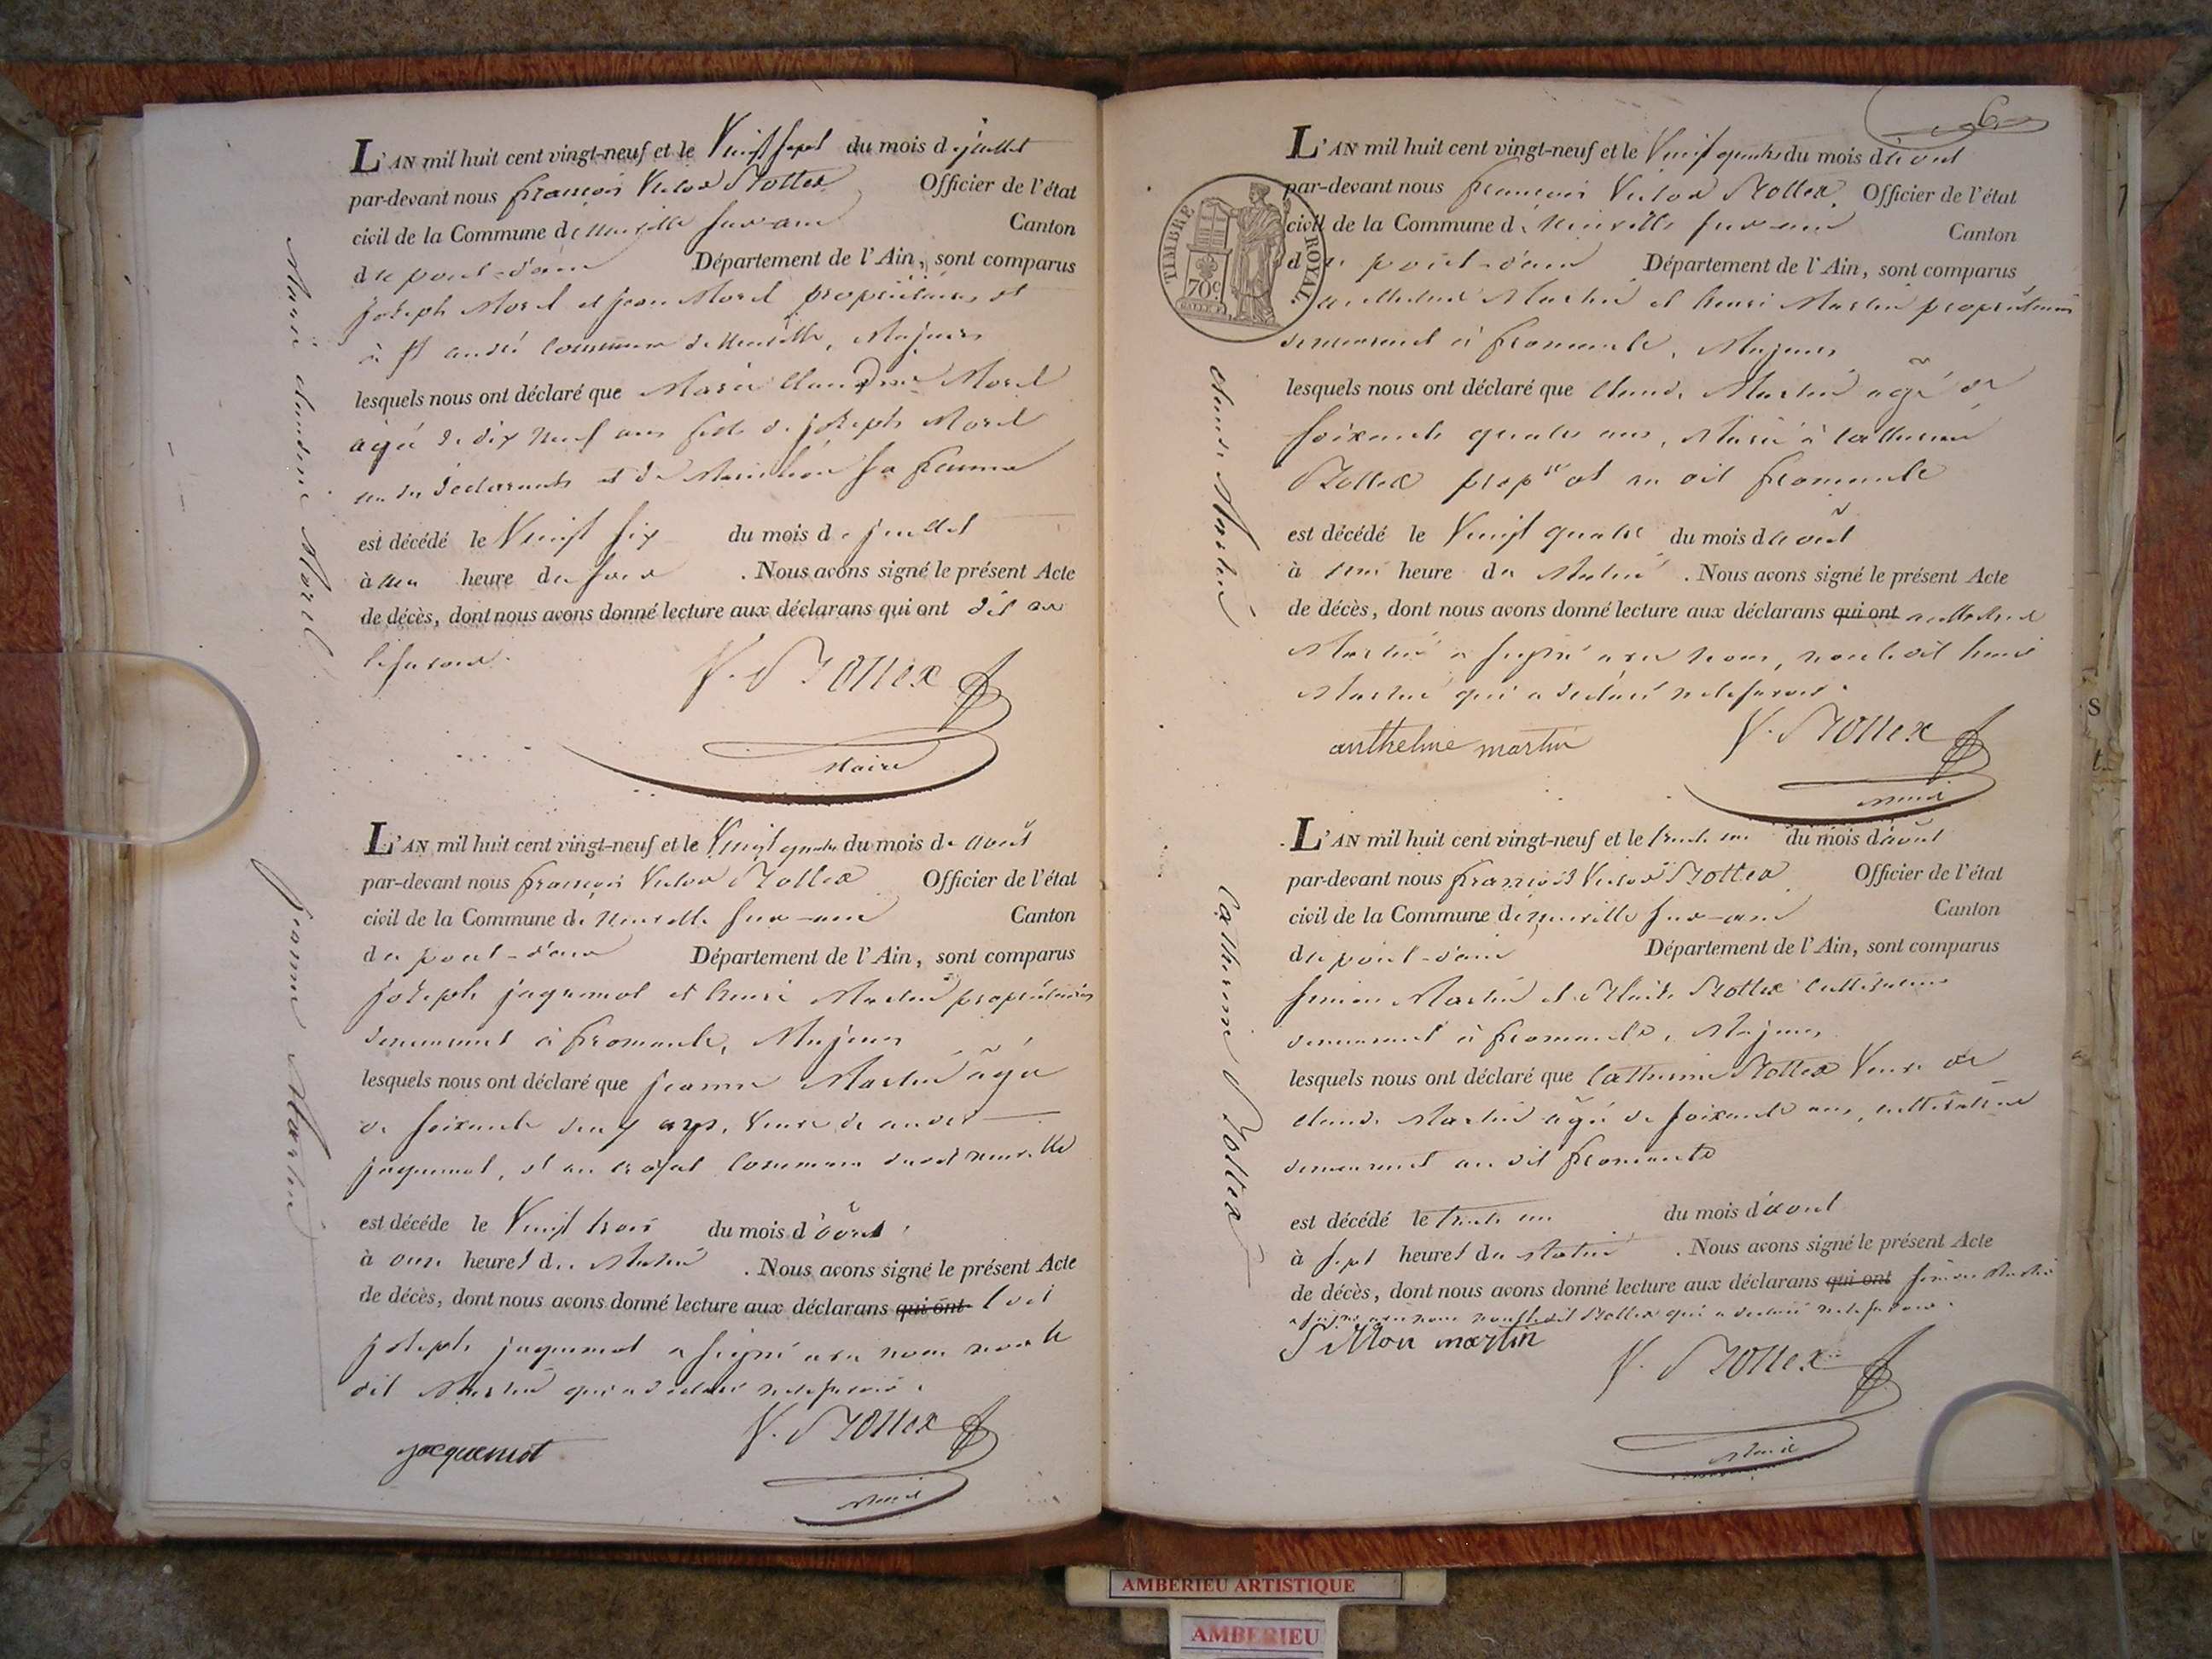 L'AN mil huit cent vingt-neuf et le Vingt sept du mois de juillet
par-devant nous françois Victor Bottex Officier de l'état
civil de la Commune de neuville sur-ain Canton
de pont-d'ain Département de l'Ain, sont comparus
joseph Morel et jean Morel propriétaires
à St andré Commune de neuville, Majeurs
lesquels nous ont déclaré que Marie Claudine Morel
agée de dix neuf ans fille de joseph Morel
un des déclarants et de sa femme
est décédé le Vingt six du mois de juillet
à un heure du soir . Nous avons signé le présent Acte
de décès, dont nous avons donné lecture aux déclarans qui ont dit ne
le savoir.
V. Bottex
Maire
Marie claudine Morel
L'AN mil huit cent vingt-neuf et le Vingt quatre du mois de août
par-devant nous françois Victor Bottex Officier de l'état
civil de la Commune de Neuville sur-ain Canton
de pont-d'ain Département de l'Ain, sont comparus
joseph jaquemot et henri Martin propriétaires
demeurant à fromente, Majeurs
lesquels nous ont déclaré que jeanne Martin âgée
de soixante deux ans, Veuve de andré
jaquemot, Commune dudit neuville
est décéde le Vingt trois du mois d'août
à onze heures du Matin . Nous avons signé le présent Acte
de décès, dont nous avons donné lecture aux déclarans qui ont ledit
joseph jaquemot a signé avec nous non le
dit Martin qui a déclaré ne le savoir.
jacquemot
V. Bottex
Maire
jeanne Martin
6
TIMBRE ROYAL
70c
L'AN mil huit cent vingt-neuf et le Vingt quatre du mois de aout
par-devant nous françois Victor Bottex Officier de l'état
civil de la Commune de Neuville sur-ain Canton
de pont-d'ain Département de l'Ain, sont comparus
anthelme Martin et henri Martin propriétaires
demeurant à fromente, Majeurs
lesquels nous ont déclaré que Claude Martin agé de
soixante quatre ans, Marié à Catherine
Bottex propre au dit fromente
est décédé le Vingt quatre du mois de août
à une heure du Matin . Nous avons signé le présent Acte
de décès, dont nous avons donné lecture aux déclarans qui ont anthelme
Martin a signé avec nous, non ledit henri
Martin qui a déclaré ne le savoir.
anthelme martin
V. Bottex
Maire
claude Martin
L'AN mil huit cent vingt-neuf et le trente un du mois d'août
par-devant nous françois Victor Bottex Officier de l'état
civil de la Commune de neuville sur-ain Canton
de pont-d'ain Département de l'Ain, sont comparus
simon Martin et Bottex cultivateurs
demeurant à fromente, Majeurs
lesquels nous ont déclaré que Catherine Bottex Veuve de
claude Martin agée de soixante ans, cultivatrice
demeurant au dit fromente
est décédé le trente un du mois d'aout
à sept heures du Matin . Nous avons signé le présent Acte
de décès, dont nous avons donné lecture aux déclarans qui ont simon Martin
a signé avec nous non ledit Bottex qui a déclaré ne le savoir.
Simon martin
V. Bottex
Maire
Catherine Bottex
S
t
AMBERIEU ARTISTIQUE
AMBERIEU